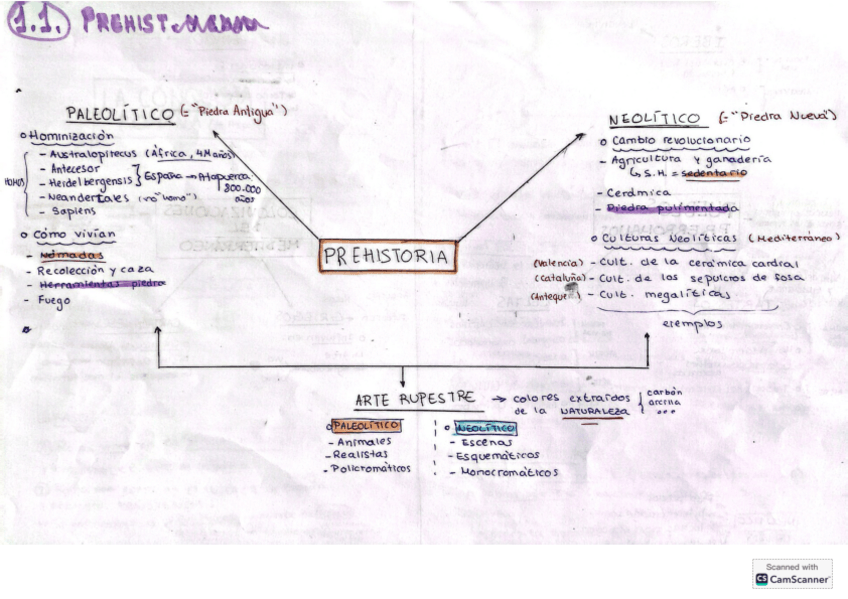 1.1. PREHIST.
PALEOLÍTICO (= "Piedra Antigua")
o Hominización
HOMOS
- Australopitecus (África, 4M años)
- Antecesor
- Heidelbergensis } España → Atapuerca:
800.000
años
- Neandertales (no "homo")
- Sapiens
o Cómo vivían
- Nómadas
- Recolección y caza
- Herramientas piedra
- Fuego
PREHISTORIA
NEOLÍTICO (= "Piedra Nueva")
o Cambio revolucionario
- Agricultura y ganadería
↳ S.H. = sedentario
- Cerámica
- Piedra pulimentada
o Culturas Neolíticas (Mediterráneo)
(Valencia) - Cult. de la cerámica cardial
(Cataluña) - Cult. de los sepulcros de fosa
- Cult. megalíticas
ejemplos
ARTE RUPESTRE → colores extraídos
de la NATURALEZA
carbón
arcilla
...
o PALEOLÍTICO
- Animales
- Realistas
- Policromáticos
o NEOLÍTICO
- Escenas
- Esquemáticos
- Monocromáticos
Scanned with
CS CamScanner